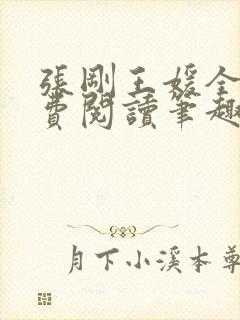 張剛王媛全
費閱讀筆趣
月下小溪本尊